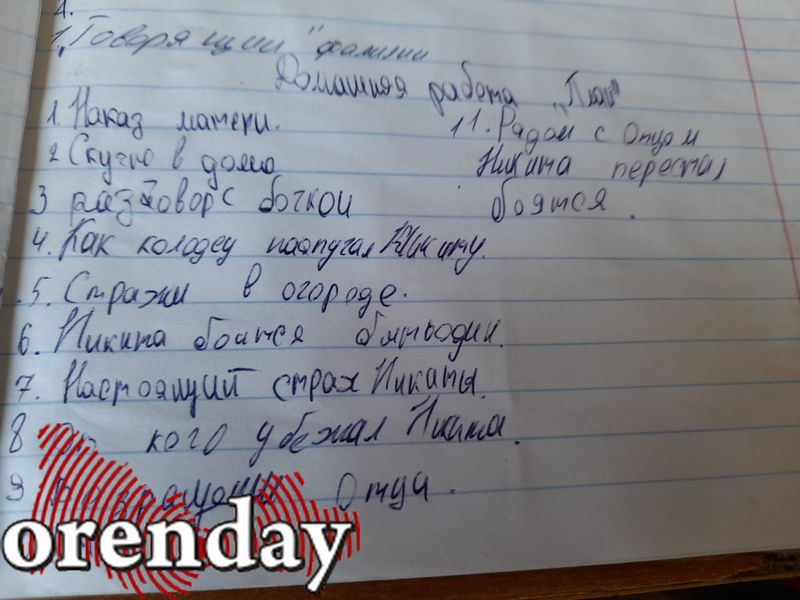 1.
1. "Говорящии" фамилии
Домашняя работа "План"
1. Наказ матери.
2 Скучно в домо
3 разговор с бочкой
4. Как колодец напугал Никиту.
5. Стражи в огороде.
6. Никита боится быть один.
7. Настоящий страх Никиты.
8 От кого убежал Никита.
9 Отца.
11. Рядом с отцом
Никита перестал
боятся.
orenday